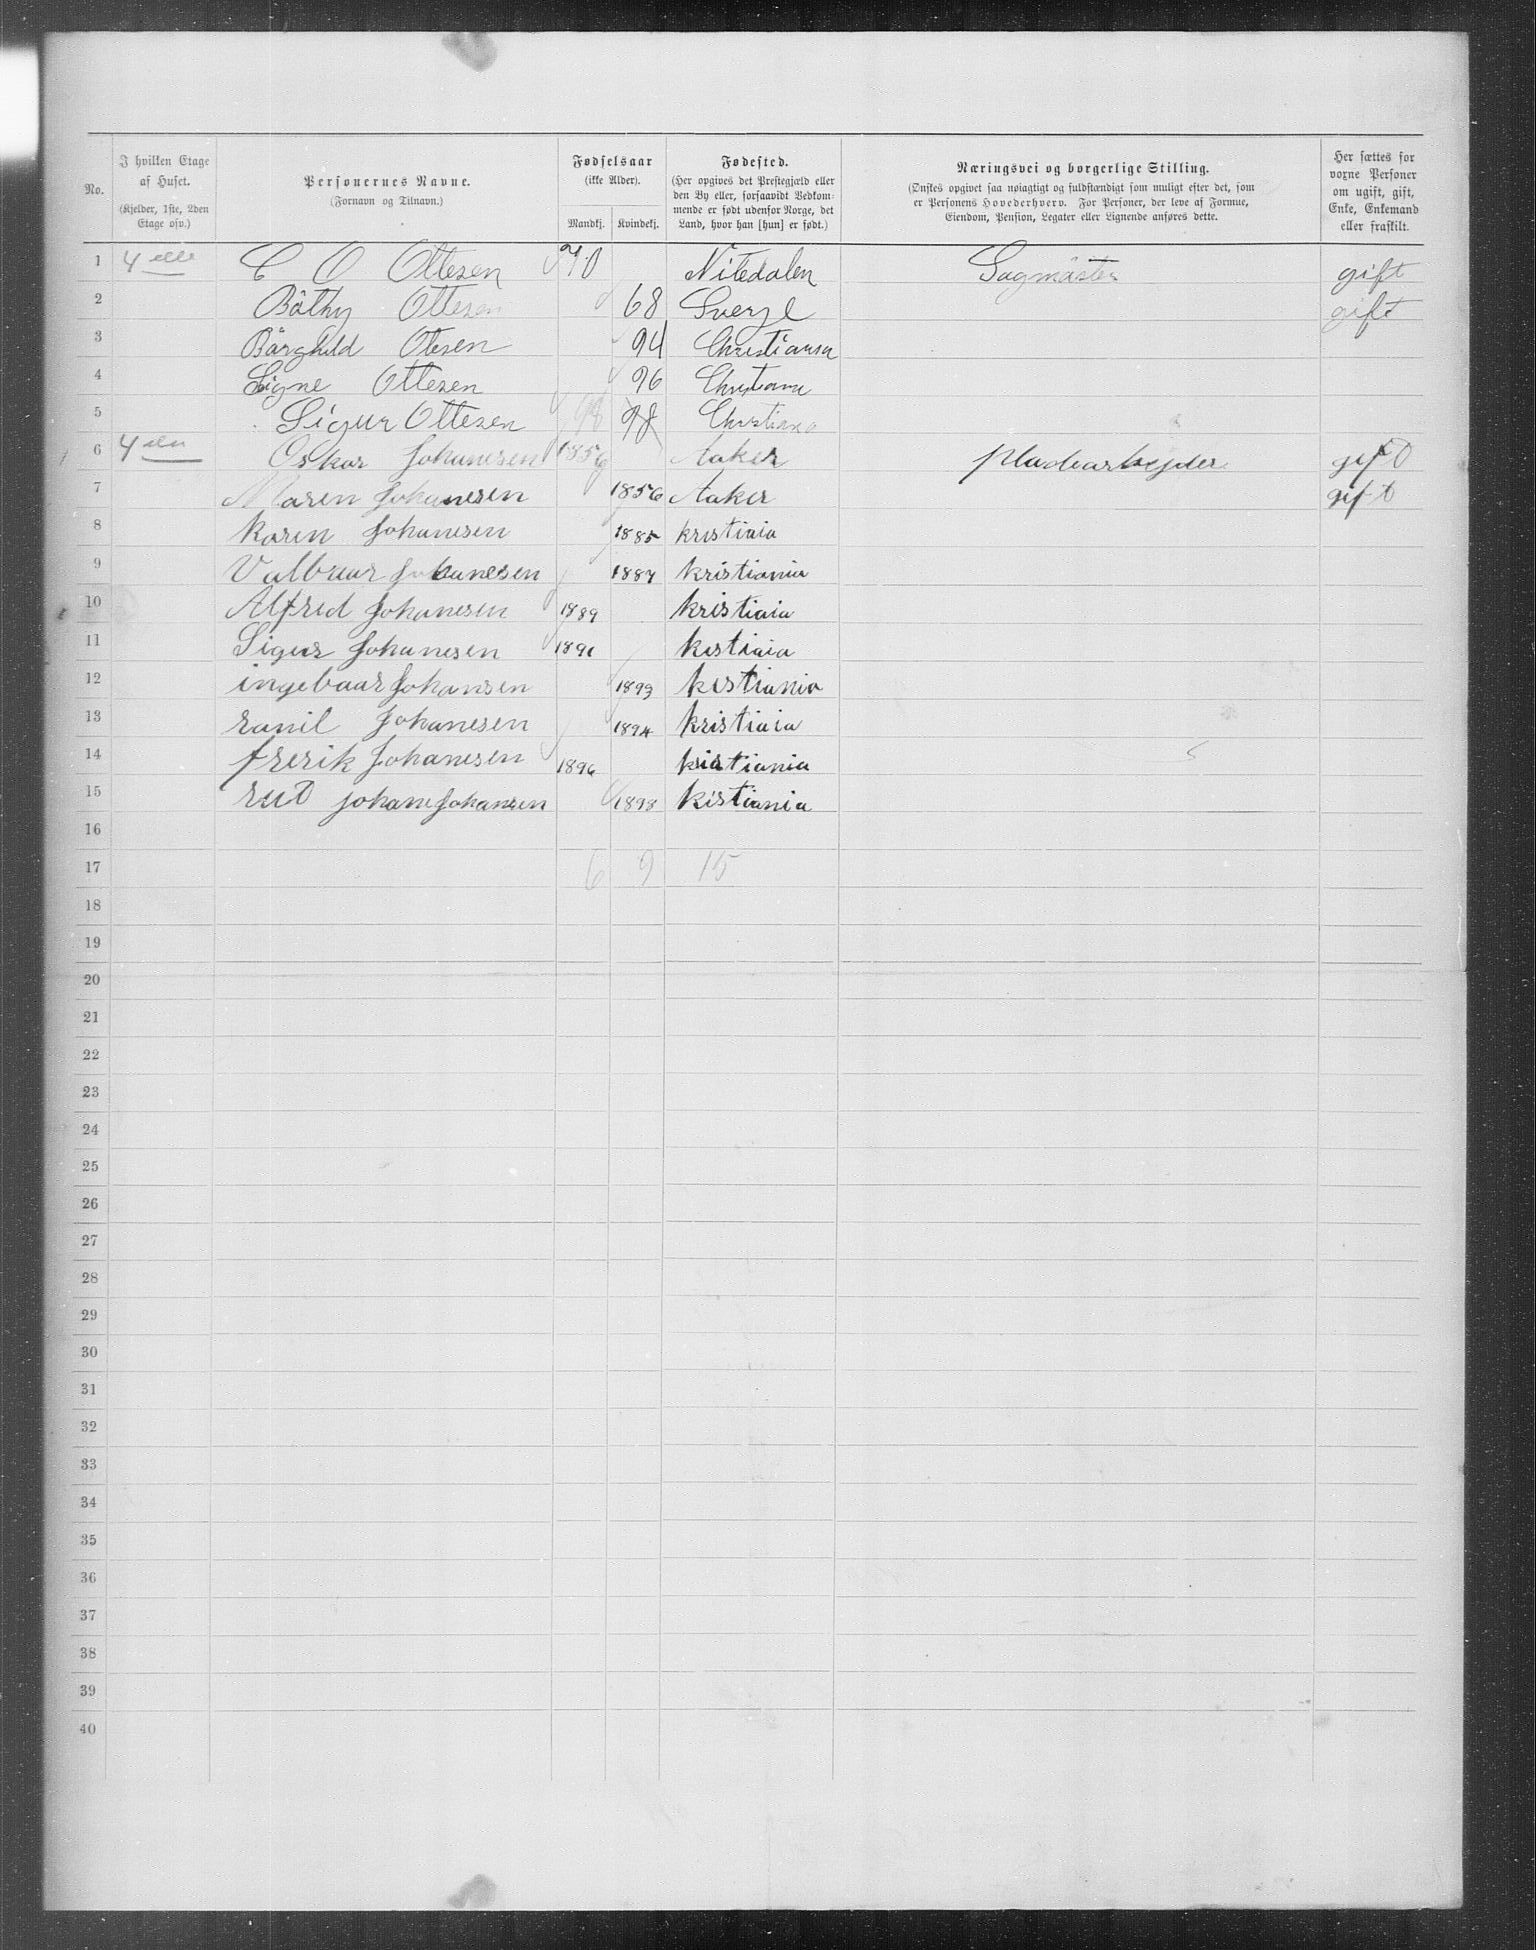 No. | I hvilken Etage af Huset. (Kjelder, 1ste, 2den Etage osv.) | Personernes Navne. (Fornavn og Tilnavn.) | Fødselsaar (ikke Alder). Mandkj. | Kvindekj. | Fødested. (Her opgives det Prestegjæld eller den By eller, forsaavidt Vedkommende er født udenfor Norge, det Land, hvor han [hun] er født.) | Næringsvei og borgerlige Stilling. (Ønskes opgivet saa nøiagtigt og fuldstændigt som muligt efter det, som er Personens Hovederhverv. For Personer, der leve af Formue, Eiendom, Pension, Legater eller Lignende anføres dette. | Her sættes for voxne Personer om ugift, gift, Enke, Enkemand eller fraskilt.
1 4 C O Ottesen 70 Nitedalen Sagmäster gift
2 Bäthy Ottesen 68 Sverge gift
3 Bärghild Otesen 94 Christiania
4 Signe Ottesen 96 Christiania
5 Sigur Ottesen 98 98 Christiania
6 4 Oskar Johannesen 1856 Aaker pladearbejder gift
7 Maren Johannesen 1856 Aaker gift
8 Karen Johanesen 1885 kristiaia
9 Valbaar Johanesen 1887 kristiania
10 Alfred Johanesen 1889 kristiaia
11 Sigur Johanesen 1891 kristiaia
12 ingebaar Johansen 1893 kristiania
13 ranil Johanesen 1894 kristiaia
14 frerik Johanesen 1896 kristiania
15 rut johane Johansen 1898 kistiania
16
17 6 9 15
18
19
20
21
22
23
24
25
26
27
28
29
30
31
32
33
34
35
36
37
38
39
40